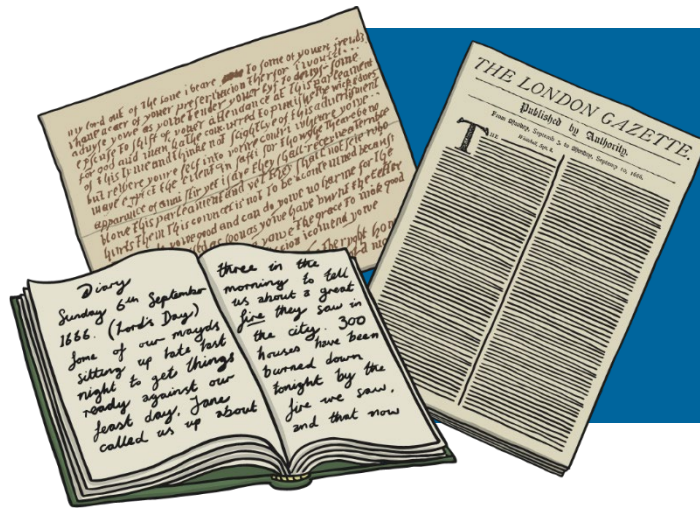 my lord out of the love i beare To some of youere frends
i have a caer of youer preservacion therfor i would
advyse yowe as yowe tender youer lyf to devys some
excuse to shift of youer attendance at this parleament
for god and man hathe concurred to punishe the wickednes
of this tyme and thinke not slightlye of this advertisment
but retiere youre self into youre contri yowe
maye expect the in safti for thowghe theare be no
apparance of anni stir yet i saye they shall receyve a terrible
blowe this parleament and yet they shall not seie who
hurts them this councel is not To be acontemned because
yowe good and can do yowe no harme for the
as soon as yowe have burnt the letter
yowe The grace To mak good
contend yowe
The right hon
THE LONDON GAZETTE.
Published by Authority.
From Monday, Septemb 3, to Monday, September 10, 1666.
The
Diary
Sunday 6th September
1666. (Lord's Day)
Some of our mayds
sitting up late last
night to get things
ready against our
feast day, Jane
called us up about
three in the
morning to tell
us about a great
fire they saw in
the city. 300
houses have been
burned down
tonight by the
fire we saw,
and that now